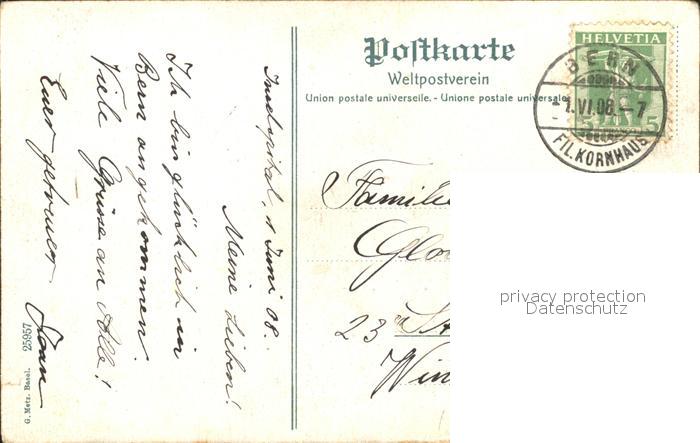 Postkarte
Weltpostverein
Union postale universelle. - Unione postale universale
HELVETIA
5 5
BERN
1.VI.08.-7
FIL.KORNHAUS
Inselspital, 1 Juni 08.
Meine Lieben!
Ich bin glücklich in
Bern angekommen.
Viele Grüsse an Alle!
Euer getreuer
Familie
23
Win
privacy protection
Datenschutz
G. Metz. Basel. 25957